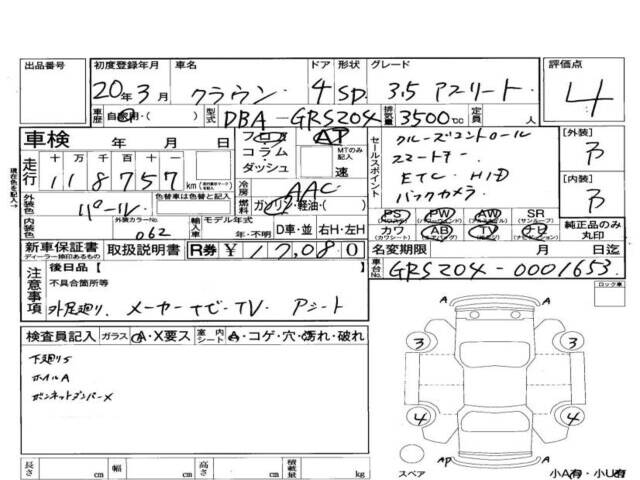 出品番号 初度登録年月 車名 ドア 形状 グレード 評価点
20年3月 クラウン 4 SD 3.5 アスリート 4
車歴 自家用・( ) 型式 DBA-GRS204 排気量 3500cc 定員 人
車検 年 月 日 フロア コラム ダッシュ AT MTのみ記入 速
走行 十万千百十一 118757km
セールスポイント クルーズコントロール
スマートキー
ETC HID
バックカメラ
[外装]
[内装]
冷房 AAC
燃料 ガソリン・軽油・( )
外装色 パール 色替車は色替と記入
内装色 外装カラーNo. 062 輸入車 モデル年式 年・不明 D車・並 右H・左H
PS PW AW SR
(パワステ) (サンルーフ)
カワ AB TV ナビ
(カワシート) (エアバッグ)
純正品のみ丸印
新車保証書 取扱説明書 R券 ¥17,080
ディーラー捺印あるもの
名変期限 月 日迄
車台No. GRS204-0001653
注意事項 後日品【 】
不具合箇所等
外足廻り、メーカーナビ・TV、Aシート
ロック車
検査員記入 ガラス A・X要ス 室内シート A・コゲ・穴・汚れ・破れ
下廻りS
ホイルA
ボンネットダンパーX
A A
3 3
4 4
AP A
スペア 小A有・小U有
長さ cm 幅 cm 高さ cm 積載量 kg